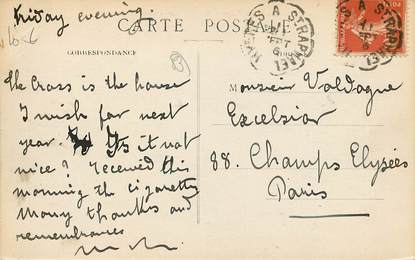 Friday evening.
CARTE POSTALE
CORRESPONDANCE
The cross is the house
I wish for next
year. Is it not
nice? received this
morning the cigarettes
Many thanks and
remembrances
Monsieur Valdagne
Excelsior
88. Champs Elysées
Paris
ST RAPHAEL